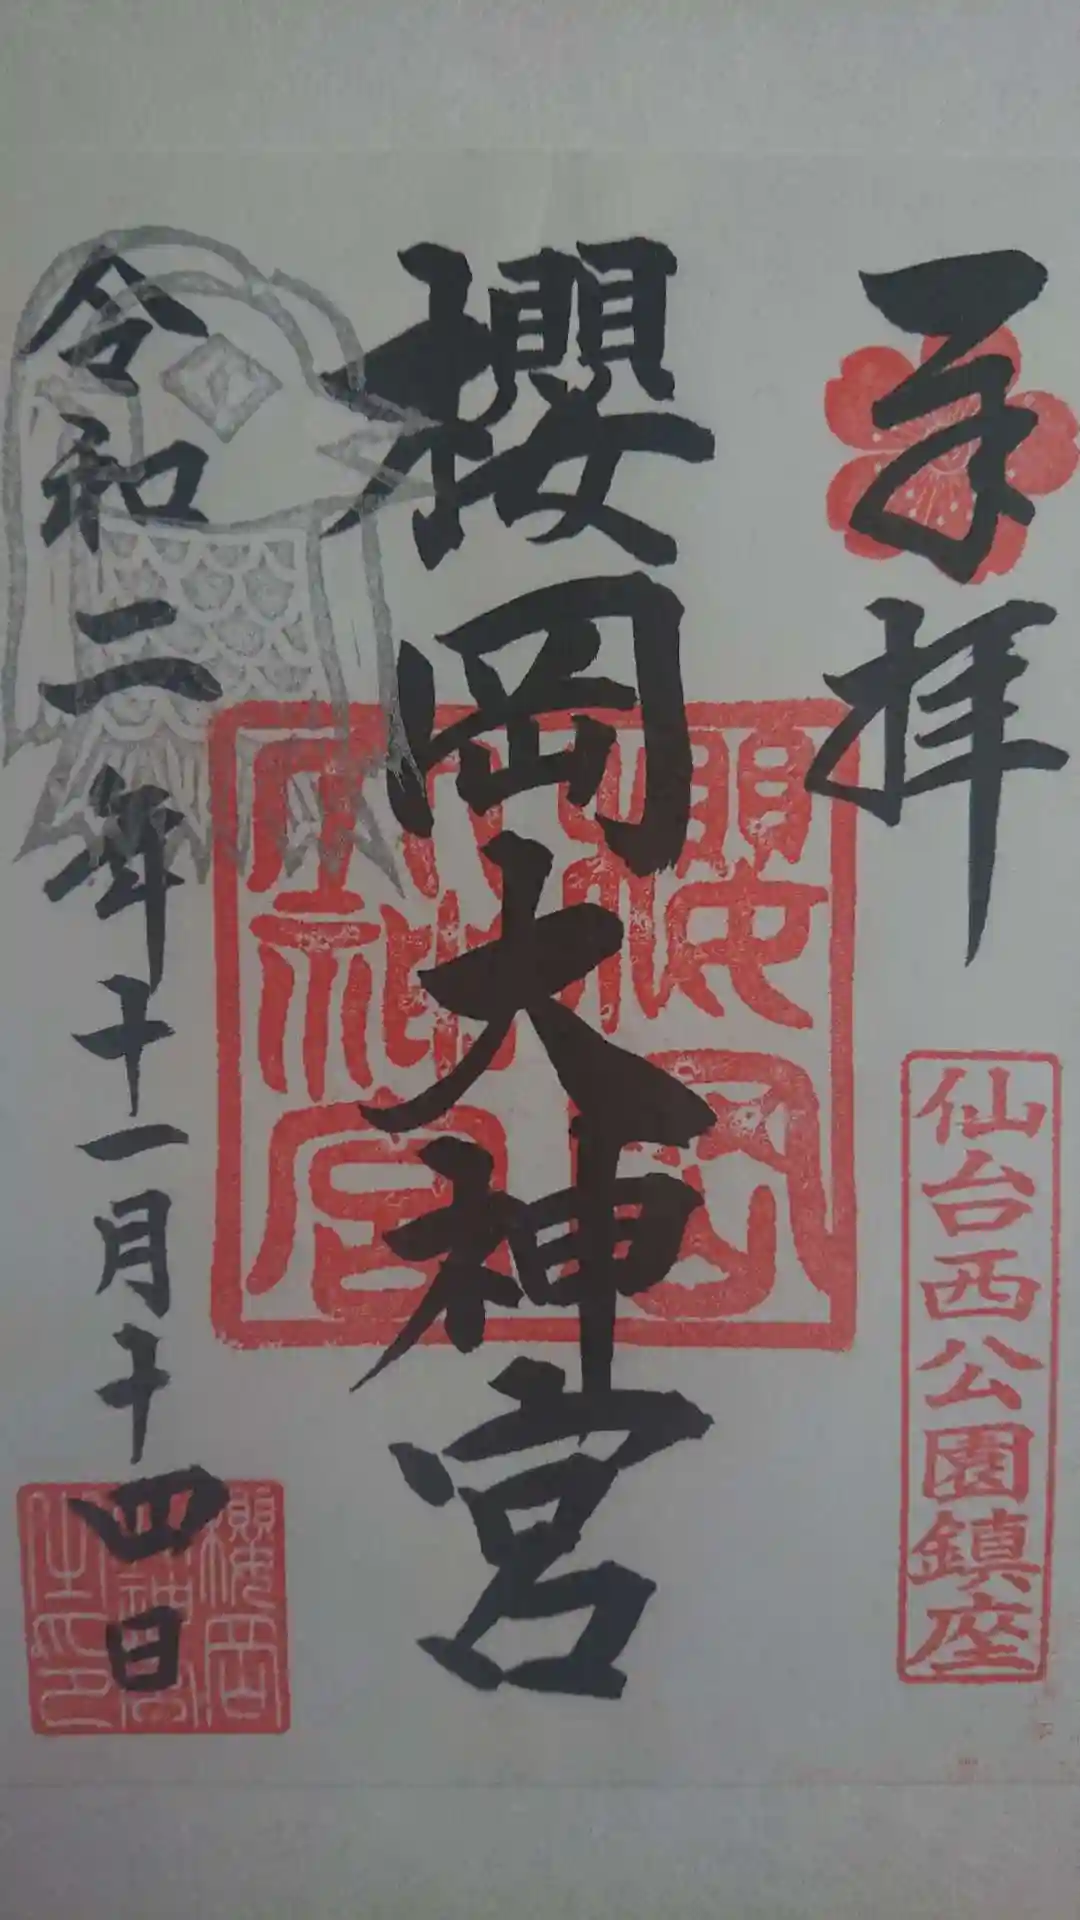 奉拝
仙台西公園鎮座
櫻岡大神宮
櫻岡
大神宮
令和二年十一月十四日
櫻岡
大神宮
之印